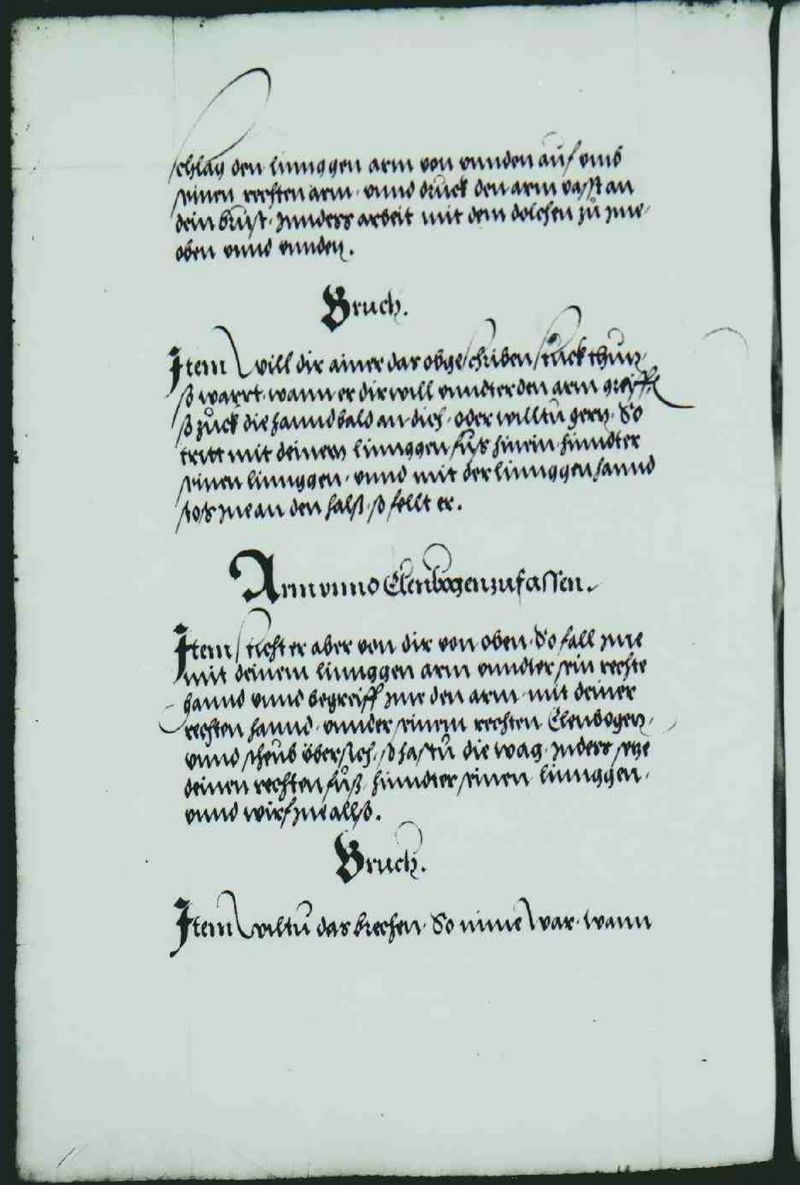 schlag den linnggen arm von unnden auf umb
seinen rechten arm · unnd druck den arm vasst an
dein brust · Inndess arbeit mit dem dolchen zů ime ·
oben unnd unnden.
Bruch.
Item Will dir ainer das obgeschriben stuck thun ·
so wartt · wann er dir will unndter den arm greyffen
so zuck die hannd bald an dich · oder willtu gern · So
tritt mit deinem linnggen fuß hinein hinndter
seinen linnggen · unnd mit der linnggen hannd
stoß ine an den halß · so fellt er.
Arm unnd Elenbogen zu fassen.
Item sticht er aber von dir von oben · So fall ime
mit deinem linnggen arm unndter sein rechte
hannd unnd begreiff ime den arm · mit deiner
rechten hannd · unnder seinem rechten Elenbogen ·
unnd scheub übersich · so hastu die wag · Inders setze
deinen rechten fuß · hinndter seinen linnggen ·
unnd wirf ine allso.
Bruch.
Item Wiltu das brechen · So nime War · wann